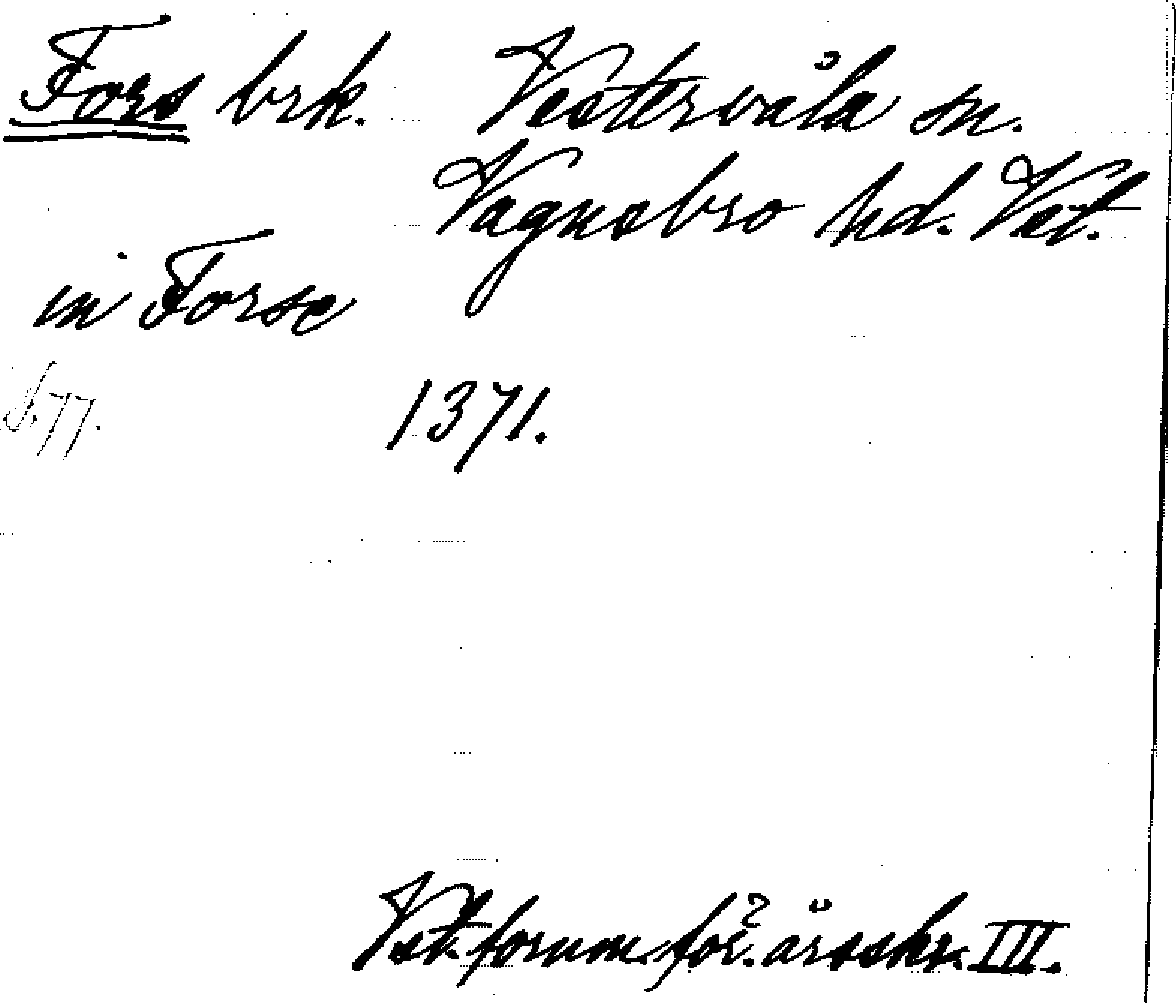 Fors brk. Vestervåla sn.
Vagnsbro hd. Vst.
in Forse
S. 77. 1371.
Vst. fornm. för:s årsskr. III.